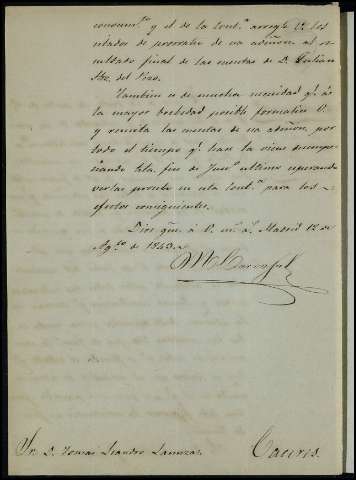 conocim.to y el de la Cont.n arregle V. los
estados de prorrateo de su admon. al re
sultado final de las cuentas de D. Julian
del Pozo.
Tambien es de mucha necesidad q.e á
la mayor brebedad posible formalize V.
y remita las cuentas de su admon. por
todo el tiempo q.e hace la viene desempe
ñando hta. fin de Jun.o ultimo esperando
verlas pronto en esta Cont.a para los
efectos consiguientes.
Dios gue. á V. m.s a.s Madrid 12 de
Ag.to de 1843.
Sr. D. Tomas Leandro
Caceres.